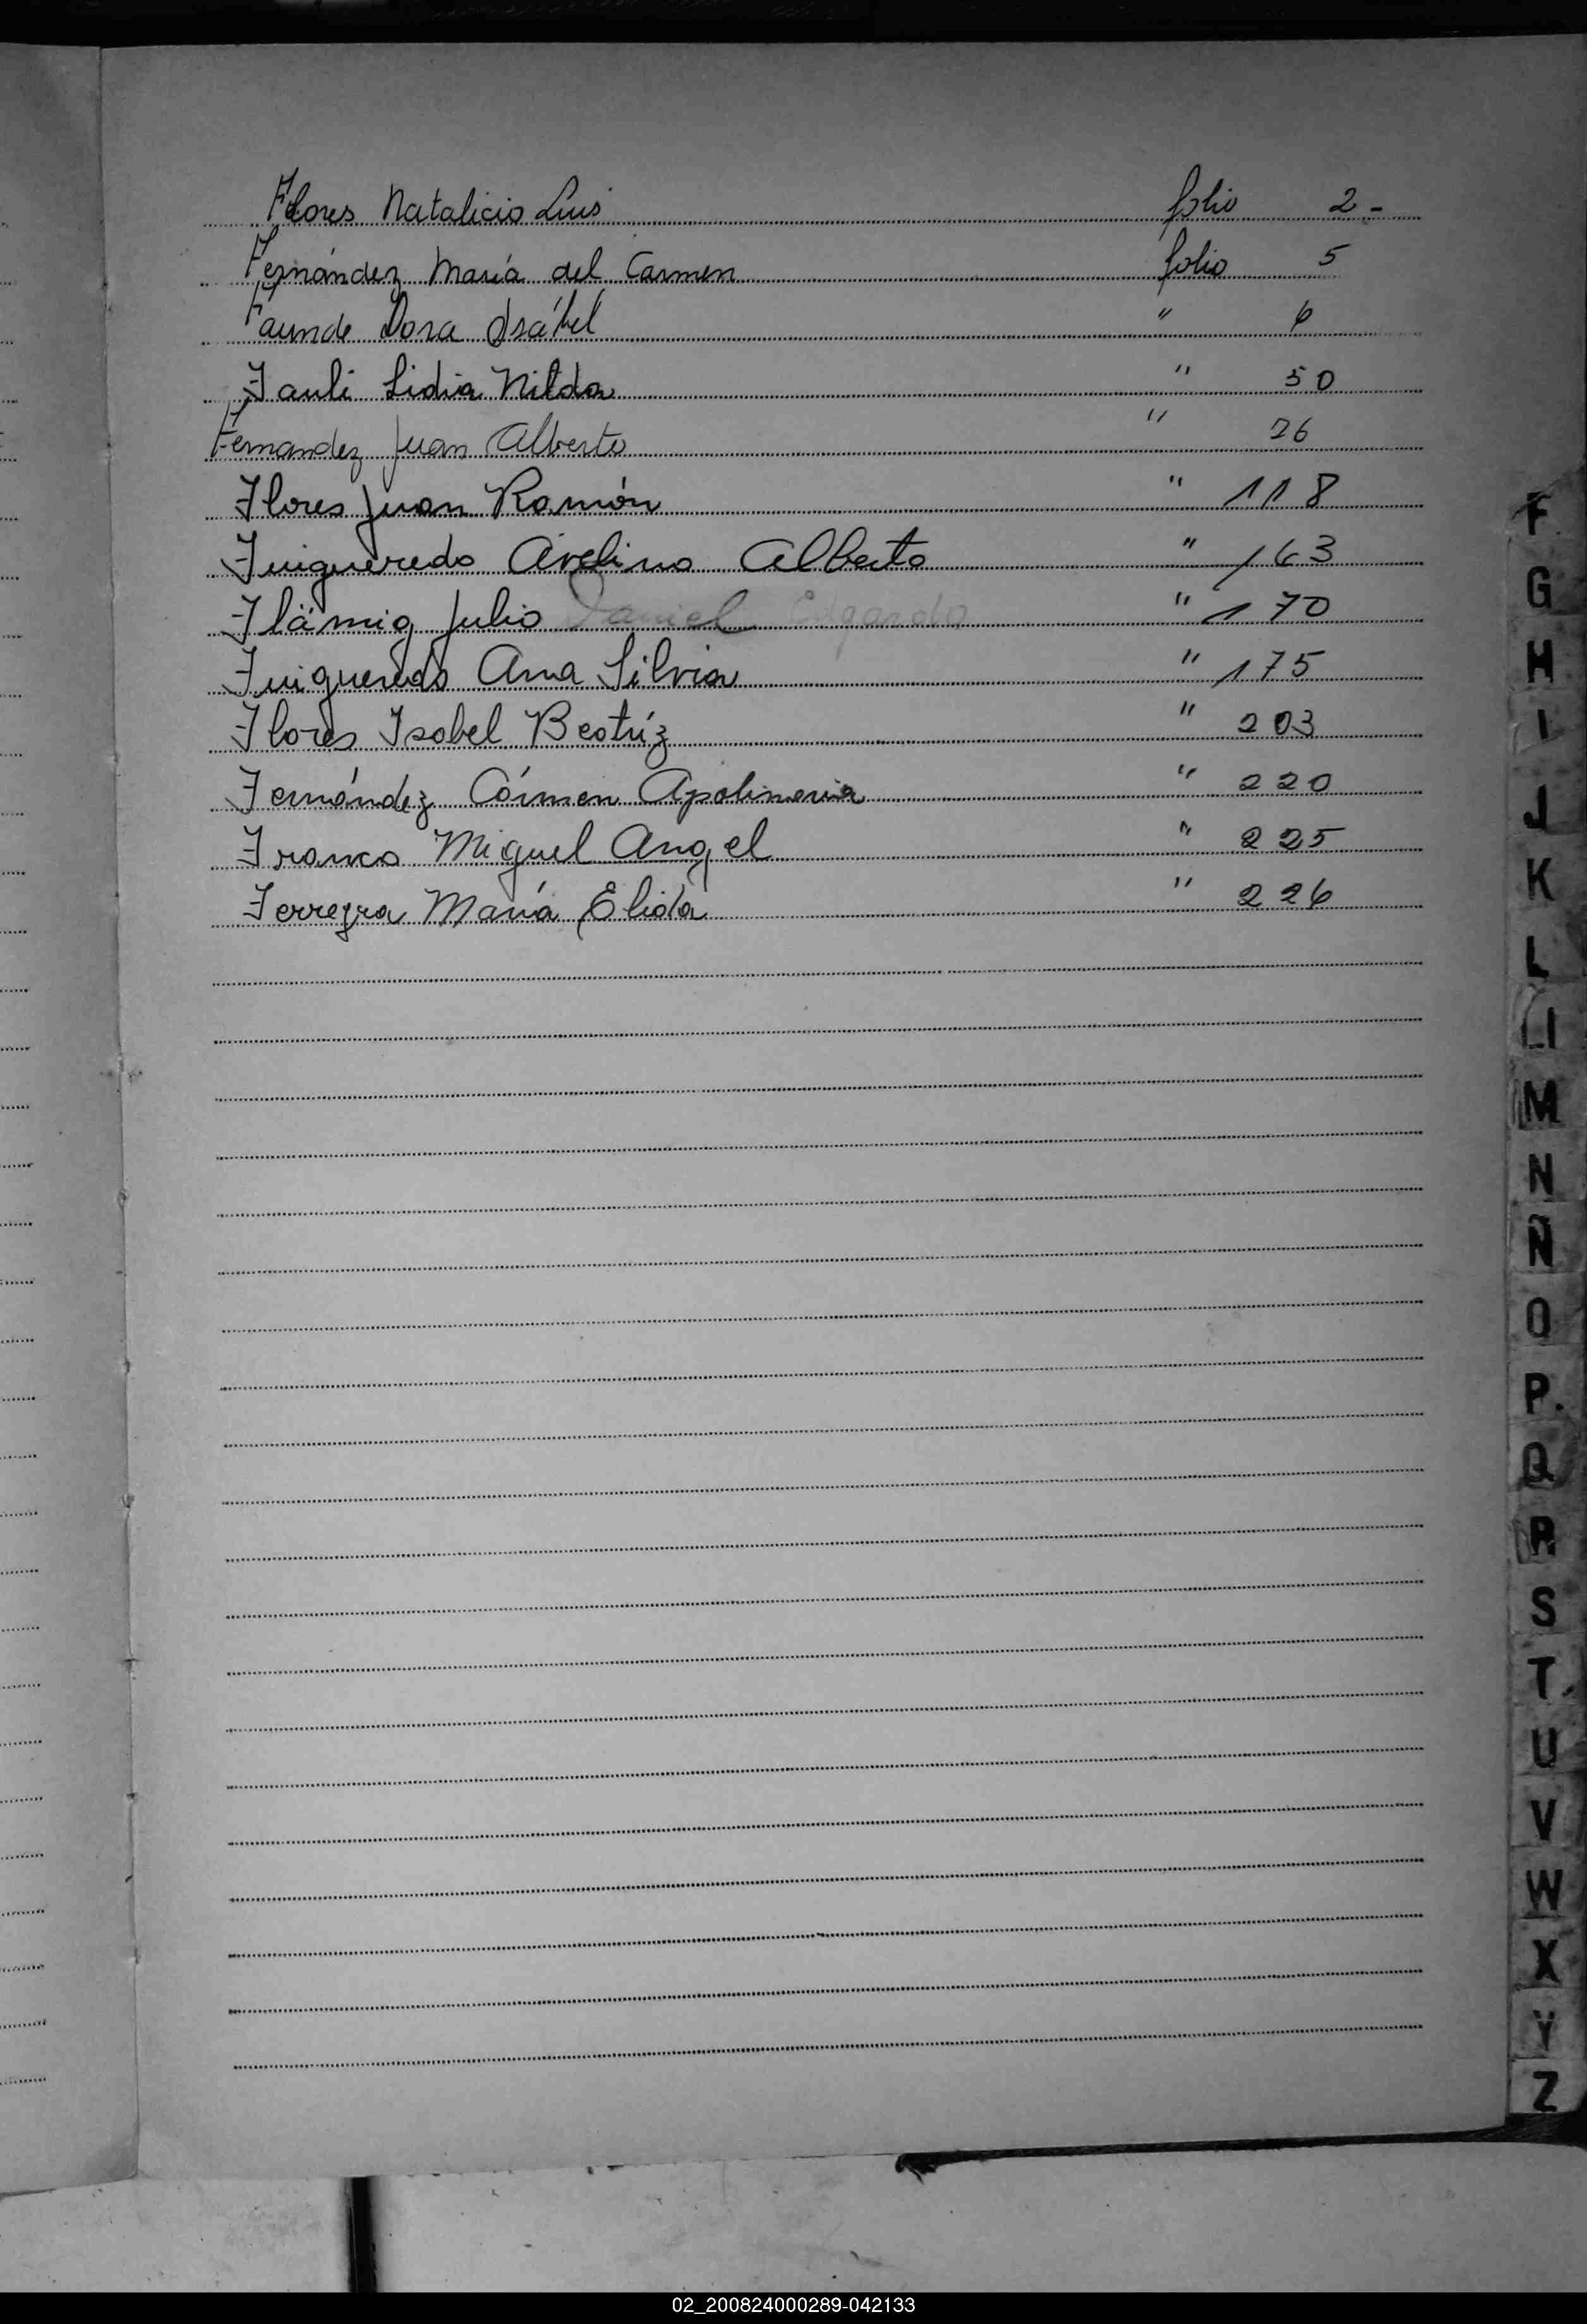 Flores Natalicio Luis folio 2-
Fernández María del Carmen folio 5
Faunde Dora Isabel " 6
Fauli Lidia Nilda " 50
Fernandez Juan Alberto " 26
Flores Juan Ramón " 118
Fuigueredo Avelino Alberto " 163
Flämig Julio Daniel Edgardo " 170
Fuigueredo Ana Silvia " 175
Flores Isabel Beatríz " 203
Fernández Cármen Apolinaria " 220
Franco Miguel Angel " 225
Ferreyra María Elida " 226
F
G
H
I
J
K
L
Ll
M
N
Ñ
O
P
Q
R
S
T
U
V
W
X
Y
Z
02_200824000289-042133